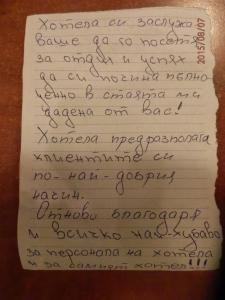 Хотела си заслужа
ваше да го посетя
за отдих и успях
да си почина пълно
ценно в стаята ми
дадена от вас!
Хотела предразполага
клиентите си
по-най-добрия
начин.
Отново благодаря
и всичко най-хубаво
за персонала на хотела
и за самият хотел!!!
2015/08/07